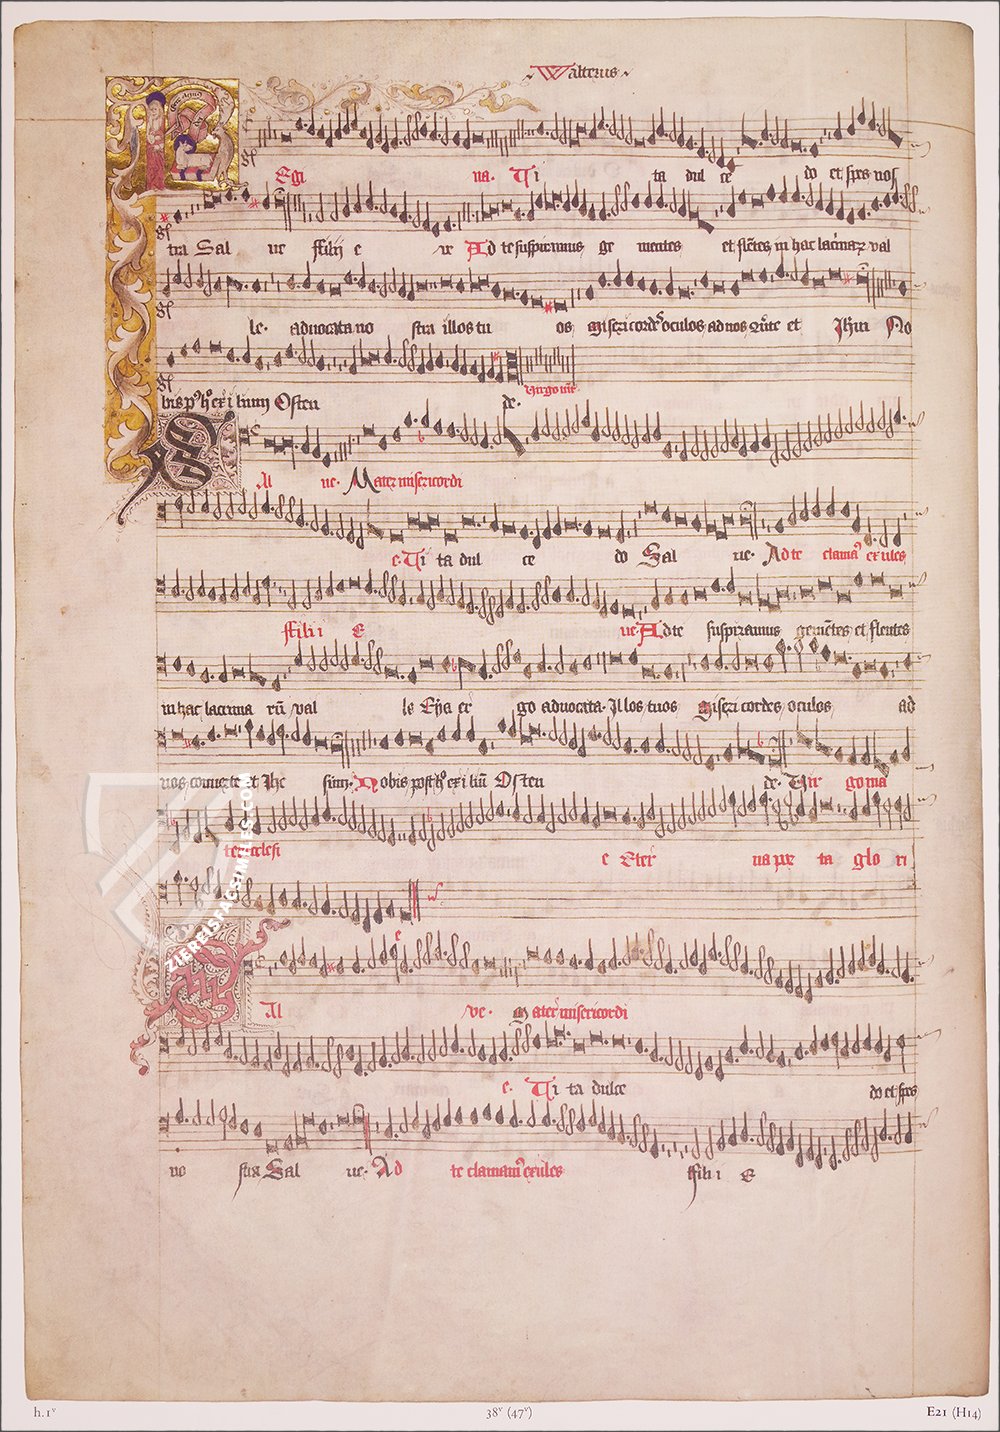 Walterus
Egi na. Ti ta dul ce do et spes nos
tra Sal ue ffilij e ue Ad te suspiramus ge mentes et flētes in hac lac̄marꝝ val
le. aduocata no stra illos tu os misericordes oculos ad nos et Ihm No
bis ex i lium Osten de.
Al ue. Mater misericordi
e. Ti ta dul ce do Sal ue. Ad te clamamꝰ exules
ffili i E ue Ad te suspiramus gemētes et flentes
in hac lacrima rū val le Eya er go aduocata. Illos tuos Miseri cordes oculos ad
nos conuerte et Ihe sum. Nobis post exi liū Osten de. Vir go ma
ter ecclesi e Eter na por ta glo ri
Al ve. Mater misericordi
e. Ti ta dulce do et spes
no stra Sal ue. Ad te clamamꝰ exules ffili i E
ZIEREISFACSIMILES.COM
h.1ᵛ 38ᵛ (47ᵛ) E21 (H14)